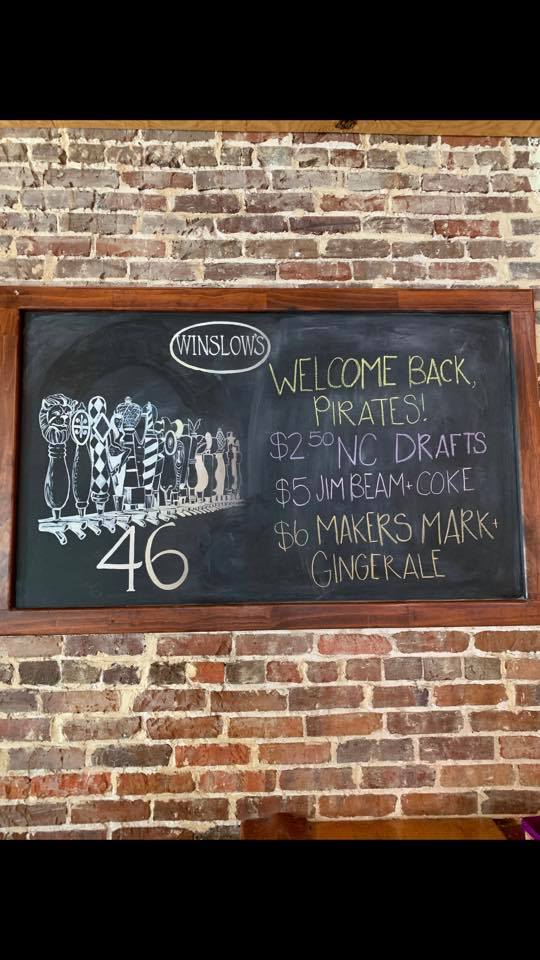 WINSLOW'S
46
WELCOME BACK,
PIRATES!
$2.50 NC DRAFTS
$5 JIM BEAM + COKE
$6 MAKERS MARK +
GINGERALE